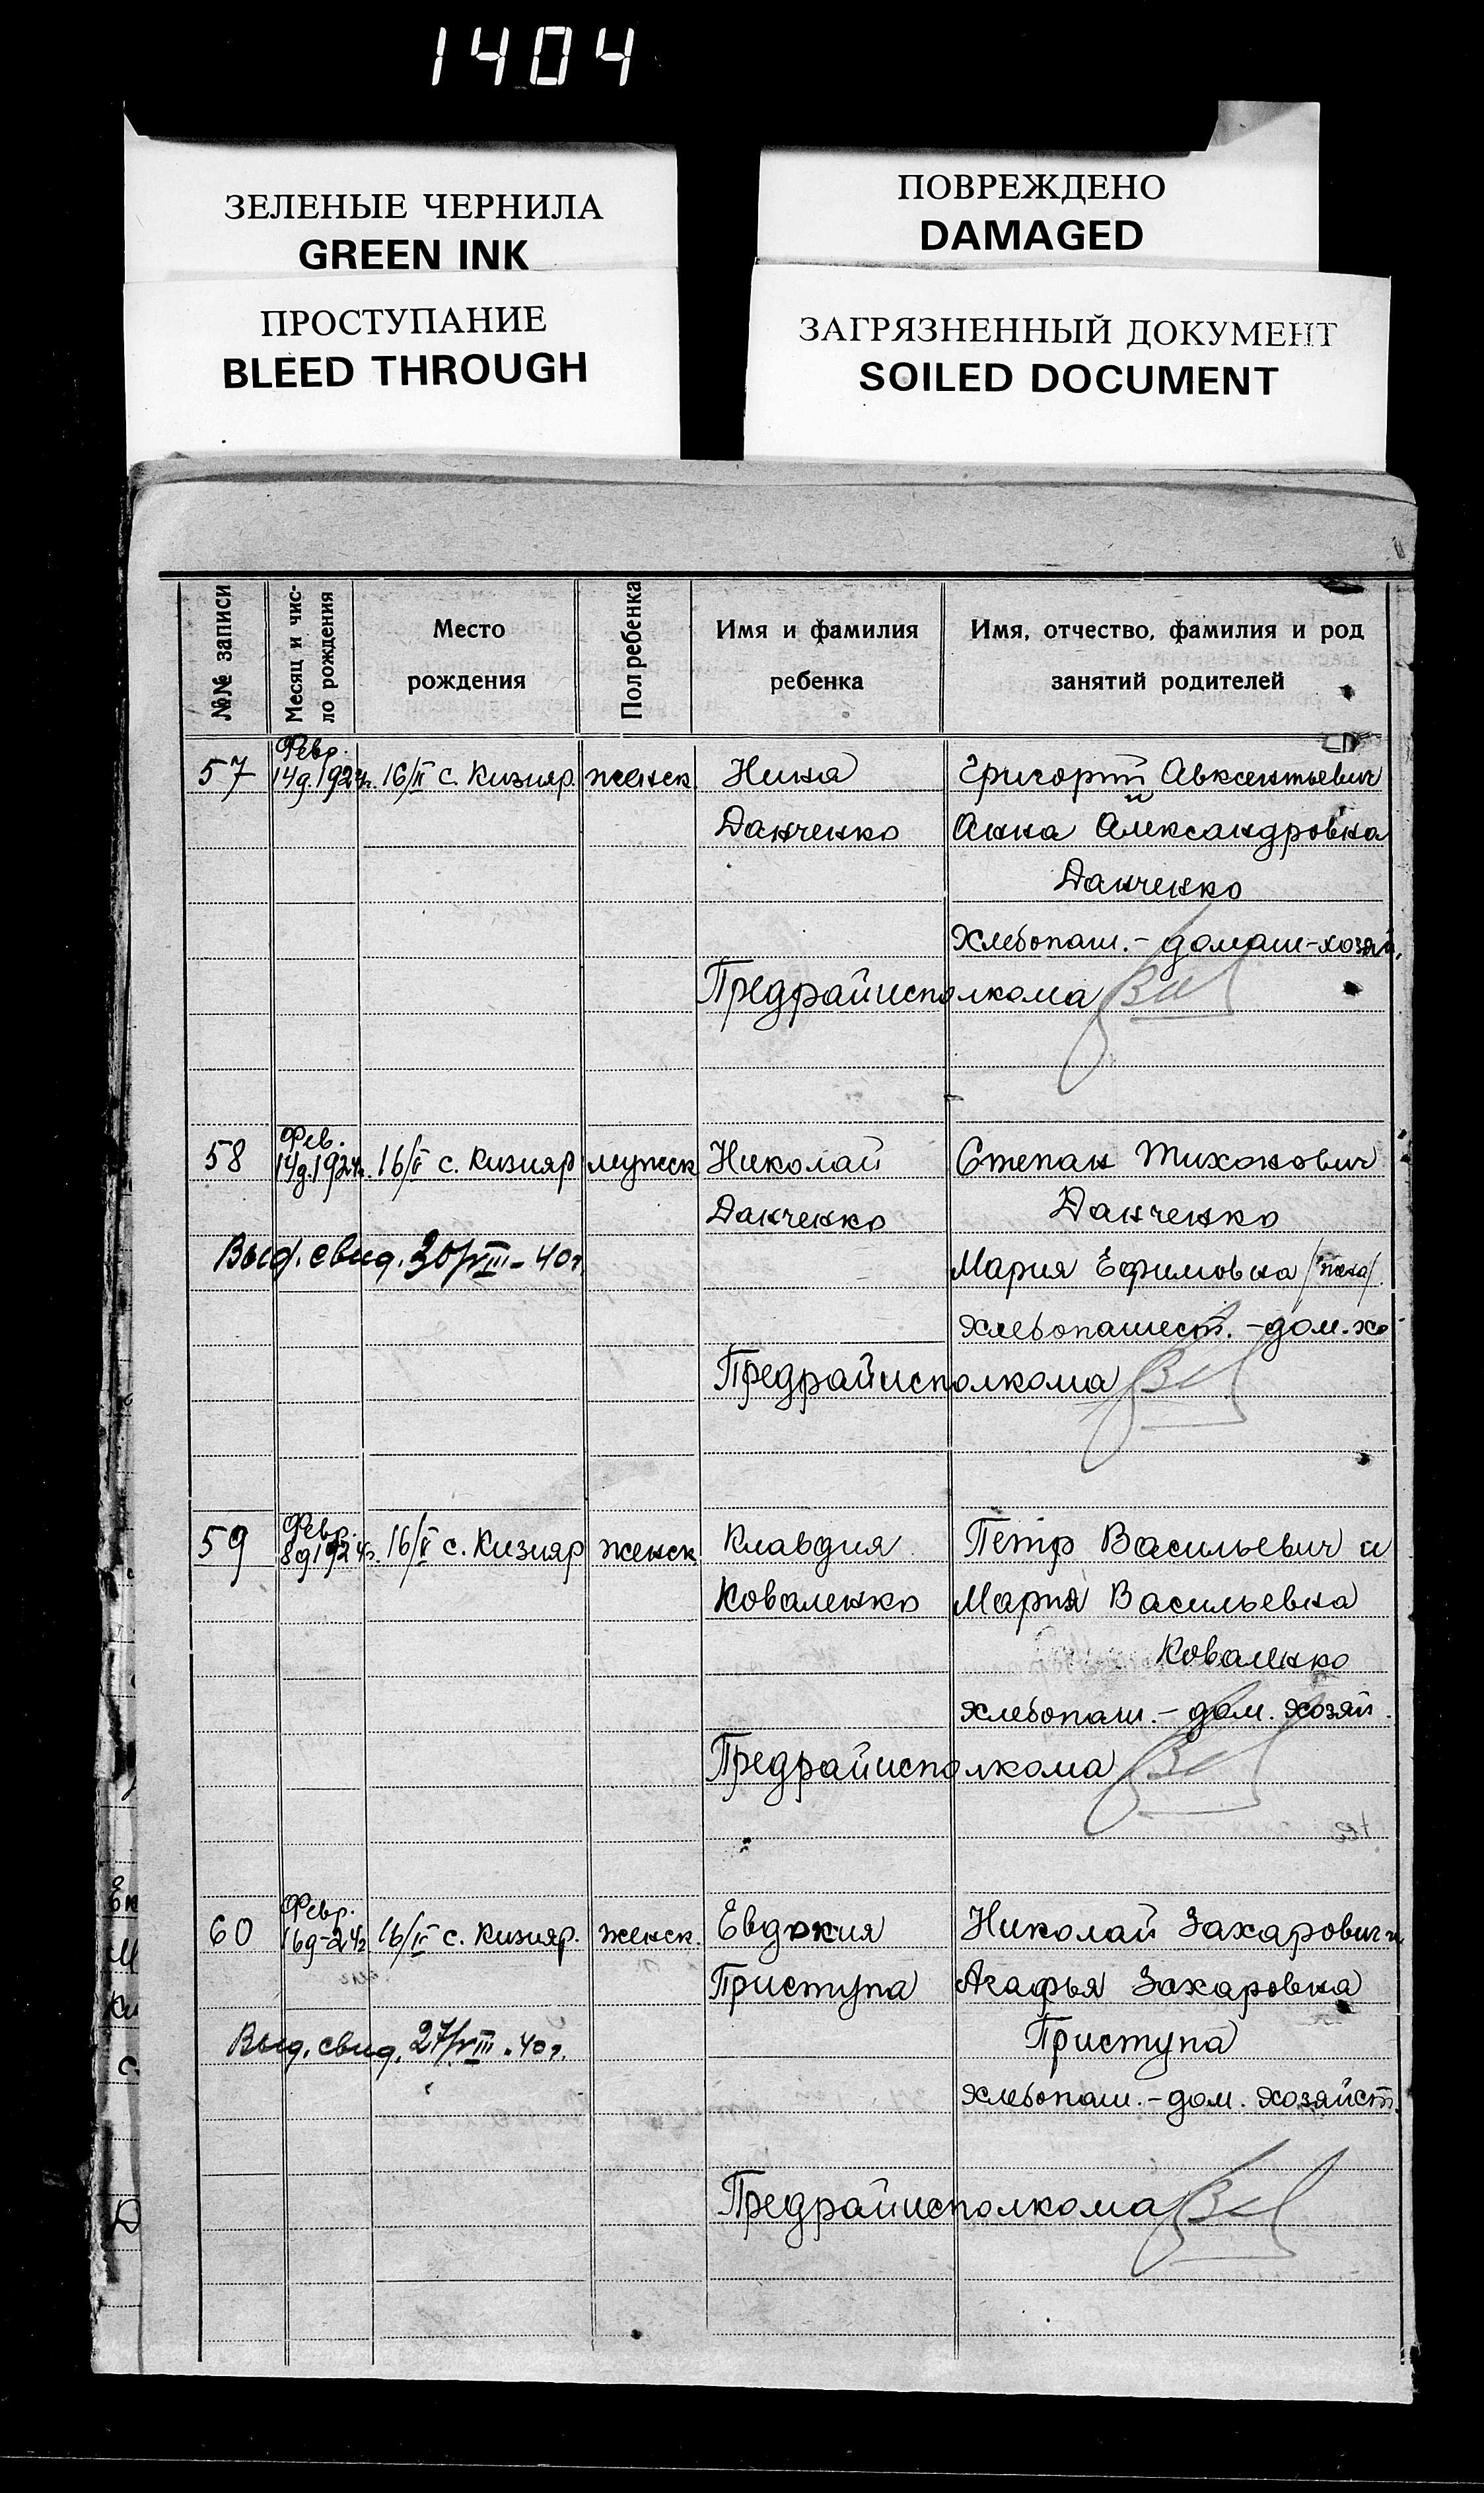 1404
ЗЕЛЕНЫЕ ЧЕРНИЛА
GREEN INK
ПРОСТУПАНИЕ
BLEED THROUGH
ПОВРЕЖДЕНО
DAMAGED
ЗАГРЯЗНЕННЫЙ ДОКУМЕНТ
SOILED DOCUMENT
№№ записи
Месяц и чис-
ло рождения
Место
рождения
Пол ребенка
Имя и фамилия
ребенка
Имя, отчество, фамилия и род
занятий родителей
Февр.
57 14д.1924г. 16/II с. Кизияр. женск. Нина Григорий Авксентьевич
и
Данченко Анна Александровна
Данченко
Хлебопаш. - домаш-хозяй.
Предрайисполкома
Фев.
58 14д.1924г. 16/II с. Кизияр мужск Николай Степан Тихонович
Данченко Данченко
Выд. свид. 30/VIII - 40г.
Мария Ефимовна
хлебопашест. - дом. хо
Предрайисполкома
Февр.
59 8д1924г. 16/II с. Кизияр женск Клавдия Петр Васильевич и
Коваленко Мария Васильевна
Коваленко
хлебопаш. - дом. хозяй.
Предрайисполкома
Февр.
60 16д-24г 16/II с. Кизияр. женск. Евдокия Николай Захарович и
Приступа Агафья Захаровна
Выд. свид. 27/VIII - 40г. Приступа
хлебопаш. - дом. хозяйст.
Предрайисполкома